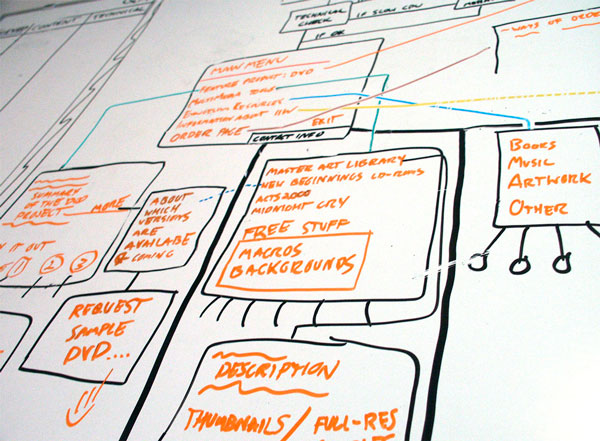 TECHNICAL
CHECK
IF SLOW CPU
IF OK
- WAYS OF ORDE
MAIN MENU
FEATURE PROJECT: DVD
MULTIMEDIA TOOLS
INFORMATION ABOUT
ORDER PAGE
EXIT
CONTACT INFO
MASTER ART LIBRARY
NEW BEGINNINGS CD-ROMS
ACTS 2000
MIDNIGHT CRY
FREE STUFF
MACROS
BACKGROUNDS
BOOKS
MUSIC
ARTWORK
OTHER
SUMMARY
OF THE DVD
PROJECT
MORE
IT OUT
1 2 3
ABOUT
WHICH
VERSIONS
ARE
AVAILABLE
& COMING
REQUEST
SAMPLE
DVD....
DESCRIPTION
THUMBNAILS / FULL-RES